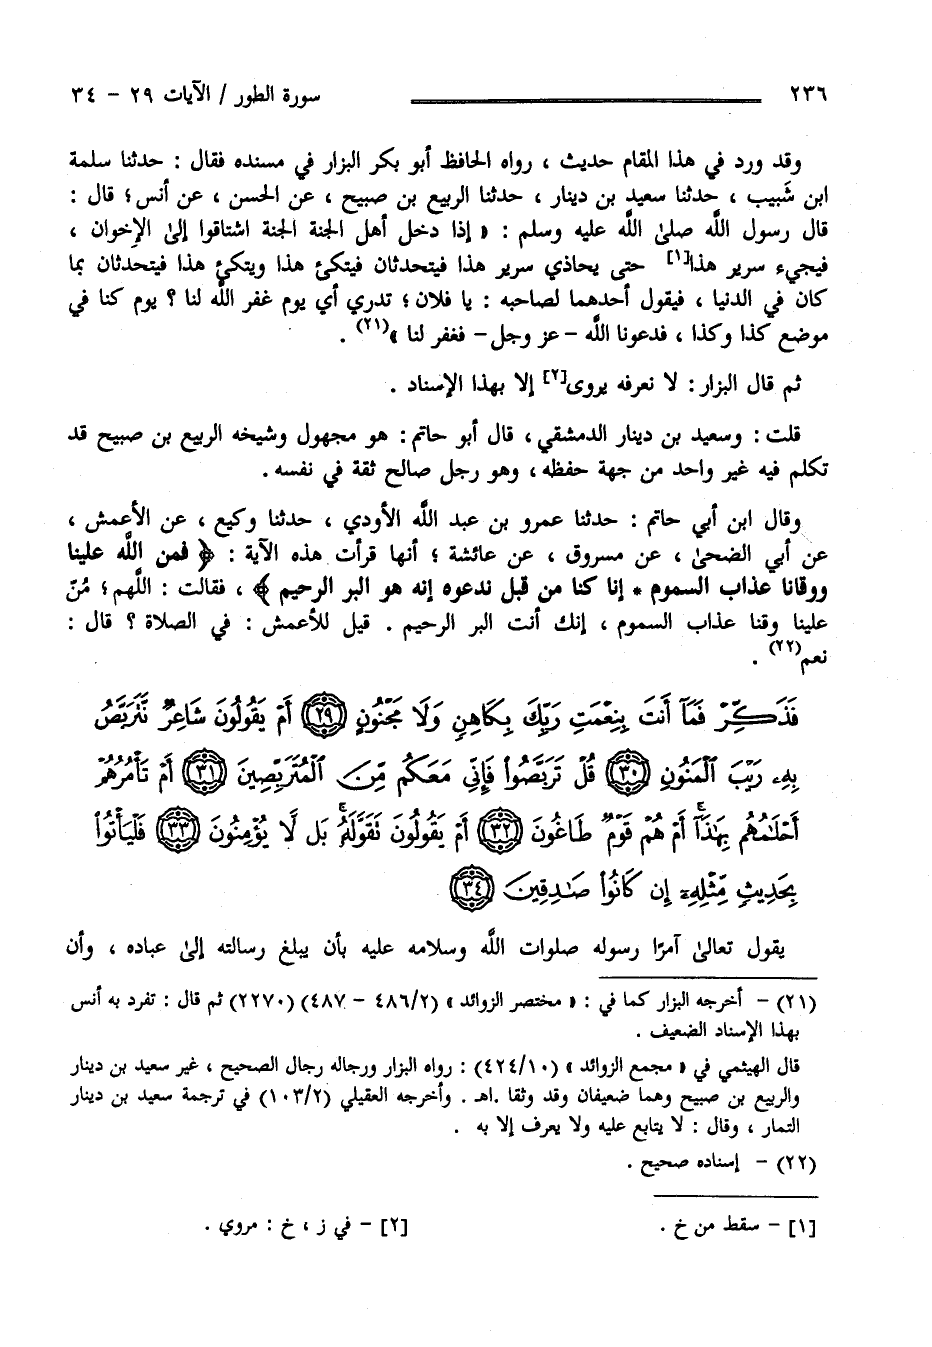 ٢٣٦ سورة الطور / الآيات ٢٩ - ٣٤
وقد ورد في هذا المقام حديث ، رواه الحافظ أبو بكر البزار في مسنده فقال : حدثنا سلمة
ابن شَبيب ، حدثنا سعيد بن دينار ، حدثنا الربيع بن صبيح ، عن الحسن ، عن أنس ؛ قال :
قال رسول اللَّه صلىٰ اللَّه عليه وسلم : « إذا دخل أهل الجنة الجنة اشتاقوا إلىٰ الإخوان ،
فيجيء سرير هذا[١] حتى يحاذي سرير هذا فيتحدثان فيتكئ هذا ويتكئ هذا فيتحدثان بما
كان في الدنيا ، فيقول أحدهما لصاحبه : يا فلان ؛ تدري أي يوم غفر اللَّه لنا ؟ يوم كنا في
موضع كذا وكذا ، فدعونا اللَّه - عز وجل - فغفر لنا »(٢١) .
ثم قال البزار : لا نعرفه يروى[٢] إلا بهذا الإسناد .
قلت : وسعيد بن دينار الدمشقي ، قال أبو حاتم : هو مجهول وشيخه الربيع بن صبيح قد
تكلم فيه غير واحد من جهة حفظه ، وهو رجل صالح ثقة في نفسه .
وقال ابن أبي حاتم : حدثنا عمرو بن عبد اللَّه الأودي ، حدثنا وكيع ، عن الأعمش ،
عن أبي الضحىٰ ، عن مسروق ، عن عائشة ؛ أنها قرأت هذه الآية : ﴿ فمن اللَّه علينا
ووقانا عذاب السموم * إنا كنا من قبل ندعوه إنه هو البر الرحيم ﴾ ، فقالت : اللَّهم ؛ مُنّ
علينا وقنا عذاب السموم ، إنك أنت البر الرحيم . قيل للأعمش : في الصلاة ؟ قال :
نعم(٢٢) .
فَذَكِّرْ فَمَآ أَنتَ بِنِعْمَتِ رَبِّكَ بِكَاهِنٍ وَلَا مَجْنُونٍ ﴿٢٩﴾ أَمْ يَقُولُونَ شَاعِرٌ نَّتَرَبَّصُ
بِهِۦ رَيْبَ ٱلْمَنُونِ ﴿٣٠﴾ قُلْ تَرَبَّصُوا۟ فَإِنِّى مَعَكُم مِّنَ ٱلْمُتَرَبِّصِينَ ﴿٣١﴾ أَمْ تَأْمُرُهُمْ
أَحْلَٰمُهُم بِهَٰذَآ ۚ أَمْ هُمْ قَوْمٌ طَاغُونَ ﴿٣٢﴾ أَمْ يَقُولُونَ تَقَوَّلَهُۥ ۚ بَل لَّا يُؤْمِنُونَ ﴿٣٣﴾ فَلْيَأْتُوا۟
بِحَدِيثٍ مِّثْلِهِۦٓ إِن كَانُوا۟ صَٰدِقِينَ ﴿٣٤﴾
يقول تعالىٰ آمرًا رسوله صلوات اللَّه وسلامه عليه بأن يبلغ رسالته إلىٰ عباده ، وأن
(٢١) - أخرجه البزار كما في : « مختصر الزوائد » (٤٨٦/٢ - ٤٨٧) (٢٢٧٠) ثم قال : تفرد به أنس
بهذا الإسناد الضعيف .
قال الهيثمي في « مجمع الزوائد » (٤٢٤/١٠) : رواه البزار ورجاله رجال الصحيح ، غير سعيد بن دينار
والربيع بن صبيح وهما ضعيفان وقد وثقا .اهـ . وأخرجه العقيلي (١٠٣/٢) في ترجمة سعيد بن دينار
التمار ، وقال : لا يتابع عليه ولا يعرف إلا به .
(٢٢) - إسناده صحيح .
[١] - سقط من خ . [٢] - في ز ، خ : مروي .